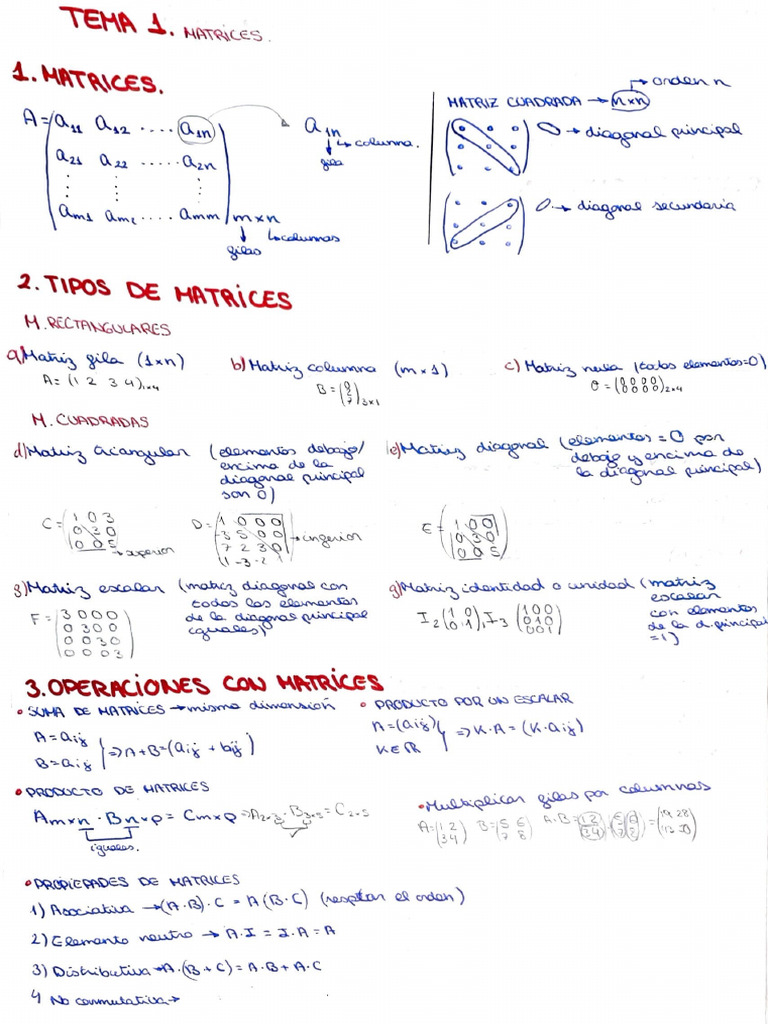 TEMA 1. MATRICES.
1. MATRICES.
A = ( a11 a12 .... a1n
a21 a22 ..... a2n
⋮ ⋮ ⋮
am1 am2 .... amm ) m×n
filas columnas
a1n
fila columna.
MATRIZ CUADRADA → n×n → orden n
→ diagonal principal
→ diagonal secundaria
2. TIPOS DE MATRICES
M. RECTANGULARES
a) Matriz fila (1×n)
A = (1 2 3 4)1×4
b) Matriz columna (m×1)
3×1
c) Matriz nula (todos elementos=0)
O = (0 0 0 0
0 0 0 0)2×4
M. CUADRADAS
d) Matriz triangular (elementos debajo/
encima de la
diagonal principal
son 0)
C = (1 0 3
0 3 0
0 0 5) → superior
D = (1 0 0 0
-3 5 0 0
7 2 3 0
1 -3 -2 1) → inferior
e) Matriz diagonal (elementos = 0 por
debajo y encima de
la diagonal principal)
E = (1 0 0
0 3 0
0 0 5)
g) Matriz escalar (matriz diagonal con
todos los elementos
de la diagonal principal
iguales)
F = (3 0 0 0
0 3 0 0
0 0 3 0
0 0 0 3)
g) Matriz identidad o unidad (matriz
escalar
con elementos
de la d. principal
=1)
I2 (1 0
0 1), I3 (1 0 0
0 1 0
0 0 1)
3. OPERACIONES CON MATRICES
• SUMA DE MATRICES → misma dimensión
A = aij
B = aij } ⇒ A+B = (aij + bij)
• PRODUCTO POR UN ESCALAR
A = (aij)
K∈R } ⇒ K·A = (K·aij)
• PRODUCTO DE MATRICES
Am×n · Bn×p = Cm×p ⇒ A2×3 · B3×5 = C2×5
iguales.
• Multiplicar filas por columnas
A = (1 2
3 4) B = (5 6
7 8) A·B = (1 2
3 4)
• PROPIEDADES DE MATRICES
1) Asociativa → (A·B)·C = A(B·C) (respetar el orden)
2) Elemento neutro → A·I = I·A = A
3) Distributiva → A·(B+C) = A·B + A·C
4 No conmutativa →